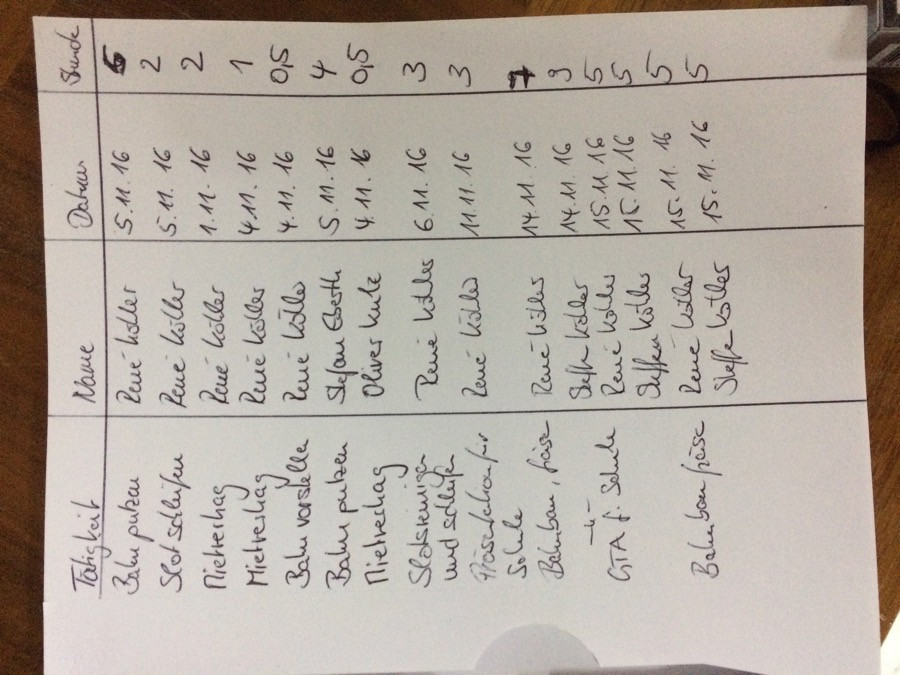 Tätigkeit Name Datum Stunde
Bahn putzen René Köller 5.11.16 6
Slot schleifen René Köller 5.11.16 2
Mietvertrag René Köller 1.11.16 2
Mietvertrag René Köller 4.11.16 1
Bahn vorstelle René Köller 4.11.16 0,5
Bahn putzen Stefan 5.11.16 4
Mietvertrag Oliver 4.11.16 0,5
Slotsreinigen René Köller 6.11.16 3
und schleifen
Präsentation für René Köller 11.11.16 3
Schule
Bahnbau, fräse René Köller 14.11.16 7
-"- Steffen Köller 14.11.16 9
GTA f. Schule René Köller 15.11.16 5
Steffen Köller 15.11.16 5
Bahnbau fräse René Köller 15.11.16 5
Steffen Köller 15.11.16 5